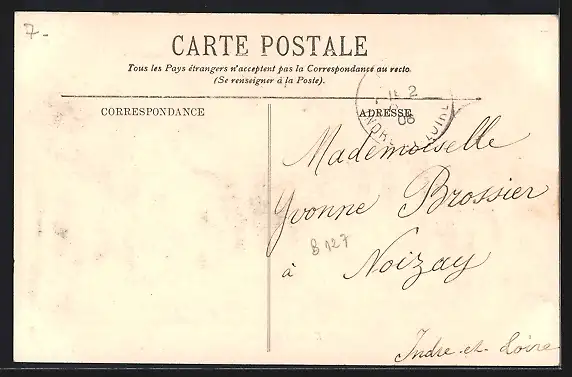 7-
CARTE POSTALE
Tous les Pays étrangers n'acceptent pas la Correspondance au recto.
(Se renseigner à la Poste).
CORRESPONDANCE
ADRESSE
2
06
INDRE LOIRE
Mademoiselle
Yvonne Brossier
B 127
à Noizay
Indre-et-Loire